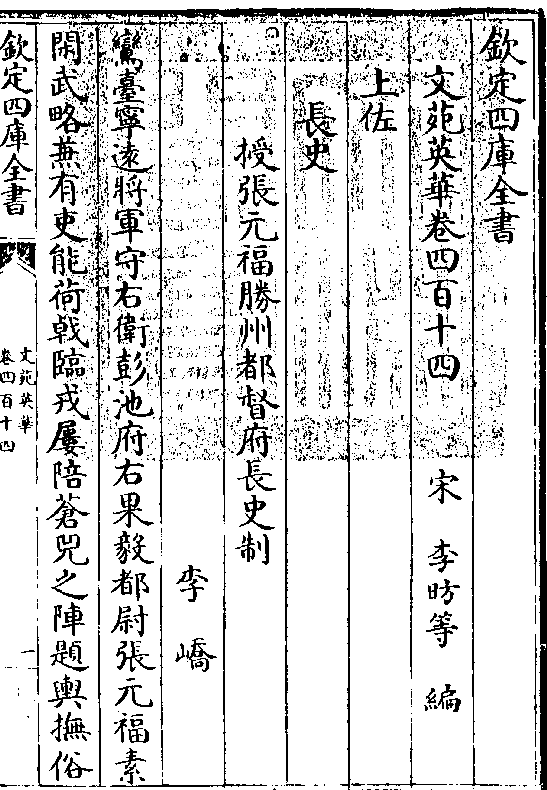 欽定四庫全書
文苑英華卷四百十四
宋 李昉等 編
上佐
長史
授張元福勝州都督府長史制
李嶠
鸞臺寧逺將軍守右衛彭池府右果毅都尉張元福素
閑武略兼有吏能荷戟臨戎屢陪蒼兕之陣題輿撫俗
欽定四庫全書
文苑英華
卷四百十四
一